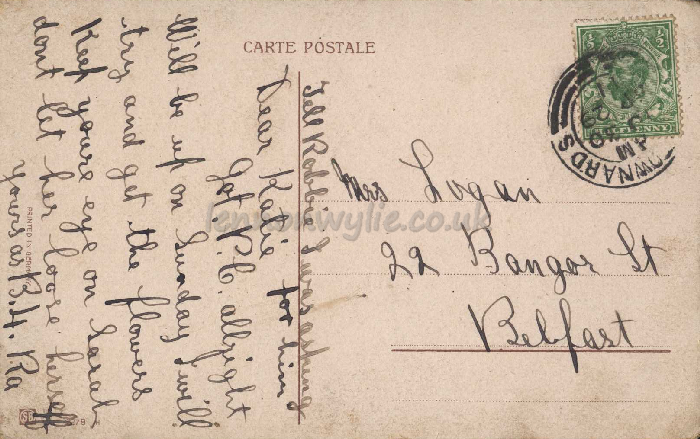 CARTE PÓSTALE
Tell Robbie I was asking
for him
Dear Katie
Got P.C. allright
Will be up on Sunday I will
try and get the flowers
Keep youre eye on Sarah
dont let her loose herself
yours as B.4. Ra
Mrs Logan
22 Bangor St
Belfast
½ ½
PENNY
OWNARDS
AM
lennonwylie.co.uk
PRINTED IN